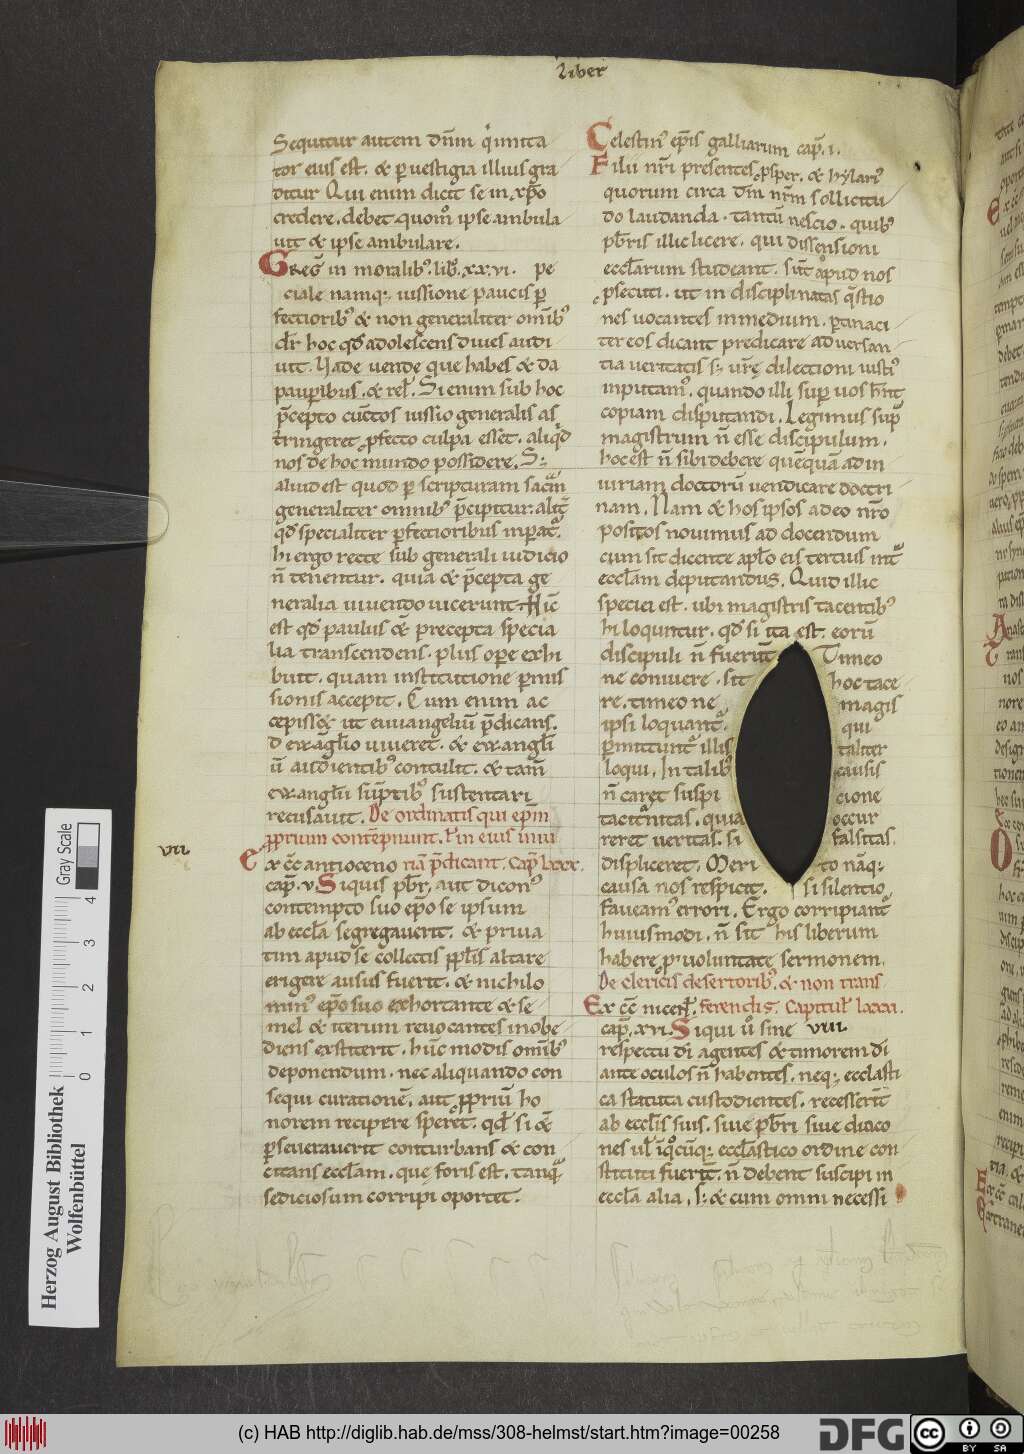 Liber
Sequitur autem dn̄m q̇ imita
tor eius est. & ꝑ uestigia illius gra
ditur Qui enim dicit se in xp̄o
credere. debet quom̊ ipse ambula
uit & ipse ambulare.
Greḡ in moralibꝰ. lib̊. xx.vi. pe
ciale namq; iussione paucis ꝑ
fectioribꝰ & non generaliter om̄ibꝰ
dr̄ hoc qd̄ adolescens diues audi
uit. Uade uende que habes & da
pauꝑibus. & rel̄. Si enim sub hoc
p̄cepto cūctos iussio generalis as
tringeret ꝓfecto culpa esset. aliqd̄
nos de hoc mundo possidere. S;
aliud est quod ꝑ scripturam sacrā
generaliter omnibꝰ p̄cipitur. aliđ
qd̄ specialiter ꝑfectioribus inꝑat᷑.
hi ergo recte sub generali iudicio
n̄ tenentur. quia & p̄cepta ge
neralia uiuendo uicerunt. Hīc
est qd̄ paulus &̄ precepta specia
lia transcendens. plus oꝑe exhi
buit. quam institutione ꝑmis
sionis accepit. Cum enim ac
cepiss& ut euuangeliū p̄dicans.
d ewāglio uiueret. & ewangl̄i
ū audientibꝰ contulit. & tam̄
ewanglii sūptibꝰ sustentari
recusauit. De ordinatis qui ep̄m
ꝓprium contēpnunt.
vii
Ex c̄c antioceno p̄dicant. Cap̄ lxxx.
cap̄. v. Siquis pb̄r. aut diconꝰ
contempto suo ep̄o se ipsum
ab eccl̄a segregauerit. & priua
tim apud se collectis ppl̄is altare
erigere ausus fuerit. & nichilo
minꝰ ep̄o suo exhortante & se
mel & iterum reuocantes inobe
diens exstiterit. hūc modis om̄ibꝰ
deponendum. nec aliquando con
sequi curationē. aut ꝓpriū ho
norem recipere speret. qd̄ si &̄
ꝑseuerauerit conturbans & con
citans eccl̄am. que foris est. tanq̄
sediciosum corripi oportet.
Celestinꝰ ep̄is galliarum cap̄. i.
Filii nr̄i presentes ꝓsper. & hylariꝰ
quorum circa dm̄ nr̄m sollicitu
do laudanda. tantū nescio. quibꝰ
pb̄ris illic licere. qui dissensioni
eccl̄arum studeant. sūt apud nos
ꝓsecuti. ut in disciplinatas q̄stio
nes uocantes in medium. ꝑtinaci
ter eos dicant predicare aduersan
tia ueritatis s; ur̄e dilectioni iustiꝰ
inputamꝰ. quando illi sup̄ uos hn̄t
copiam disputandi. Legimus sup̄
magistrum n̄ esse discipulum.
hoc est n̄ sibi debere quēquā ad in
iuriam doctorū uendicare doctri
nam. Nam & hos ipsos a deo nr̄o
positos nouimus ad docendum
cum sit dicente apl̄o eis tertius int̄
eccl̄am deputandus. Quid illic
speciei est. ubi magistris tacentibꝰ
hi loquntur. qd̄ si ita est. eorū
discipuli n̄ fuerūt Timeo
ne coniuere. sit hoc tace
re. timeo ne magis
ipsi loquant᷑. qui
ꝑmittunt᷑ illis taliter
loqui. In talibꝰ causis
n̄ caret suspi cione
taciturnitas. quia occur
reret ueritas. si falsitas.
displiceret. Meri to nāq;
causa nos respicit. si silentio
faueamꝰ errori. Ergo corripiant᷑
huiusmodi. n̄ sit his liberum
habere p̲ uoluntate sermonem.
De clericis desertoribꝰ. & non trans
ferendis. Capitul̄ lxxxi.
Ex c̄c nicen̄.
cap̄. xvi. Siqui ū sine viii
respectu di̅ agentes & timorem di̅
ante oculos n̄ habentes. neq; ecclasti
ca statuta custodientes. recesserīt
ab eccl̄is suis. siue pb̄ri siue diaco
nes ul̄ iq̊cūq; eccl̄astico ordine con
stituti fuerīt. n̄ debent suscipi in
eccl̄a alia. s; & cum omni necessi
Gray Scale
0 1 2 3 4
Herzog August Bibliothek
Wolfenbüttel
(c) HAB http://diglib.hab.de/mss/308-helmst/start.htm?image=00258
DFG
cc BY SA